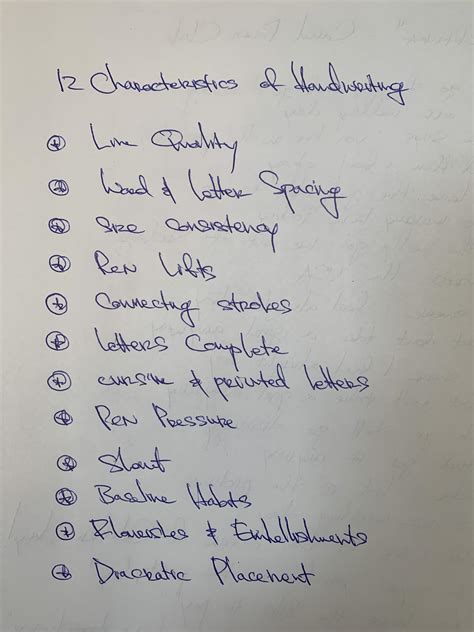 12 Characteristics of Handwriting
Line Quality
Word & Letter Spacing
Size Consistency
Pen Lifts
Connecting Strokes
Letters Complete
cursive & printed letters
Pen Pressure
Slant
Baseline Habits
Flourishes & Embellishments
Diacratic Placement